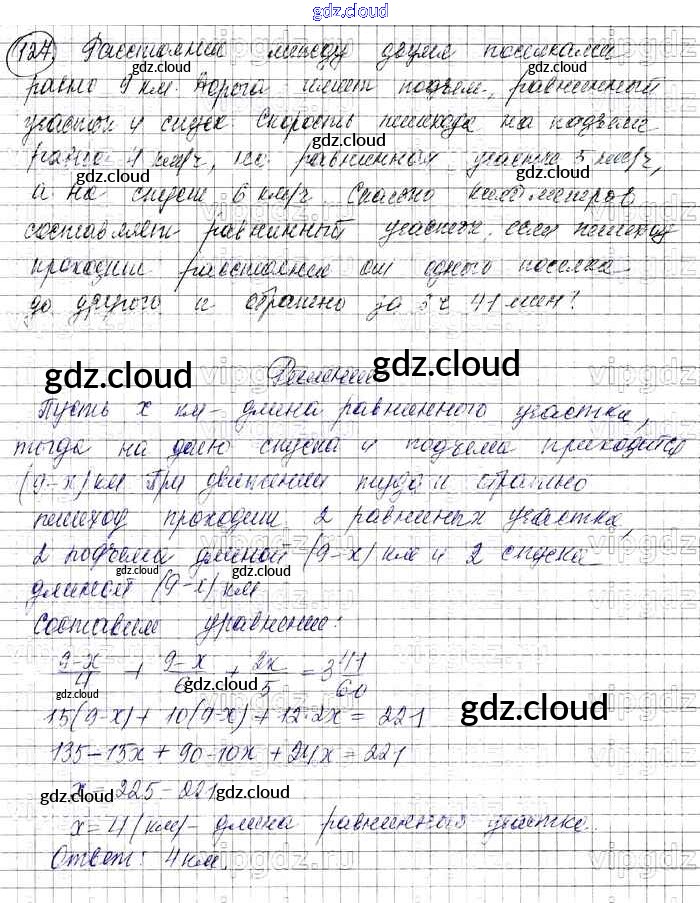 gdz.cloud
127. Расстояние между двумя поселками
gdz.cloud gdz.cloud
равно 9 км. Дорога имеет подъем, равнинный
участок и спуск. Скорость пешехода на подъеме
gdz.cloud
равна 4 км/ч, на равнинном участке 5 км/ч,
gdz.cloud gdz.cloud
а на спуске 6 км/ч. Сколько километров
составляет равнинный участок, если пешеход
проходит расстояние от одного поселка
до другого и обратно за 3 ч 41 мин?
gdz.cloud gdz.cloud
Решение
Пусть x км - длина равнинного участка,
тогда на долю спуска и подъема приходится
(9-x) км При движении туда и обратно
пешеход проходит 2 равнинных участка,
2 подъема длиной (9-x) км и 2 спуска
gdz.cloud gdz.cloud
длиной (9-x) км
Составим уравнение:
9-x/4 + 9-x/6 + 2x/5 = 3 41/60
gdz.cloud gdz.cloud
15(9-x) + 10(9-x) + 12·2x = 221
gdz.cloud
135-15x + 90-10x + 24x = 221
x = 225-221
gdz.cloud gdz.cloud
x = 4 (км) - длина равнинного участка.
Ответ: 4 км.